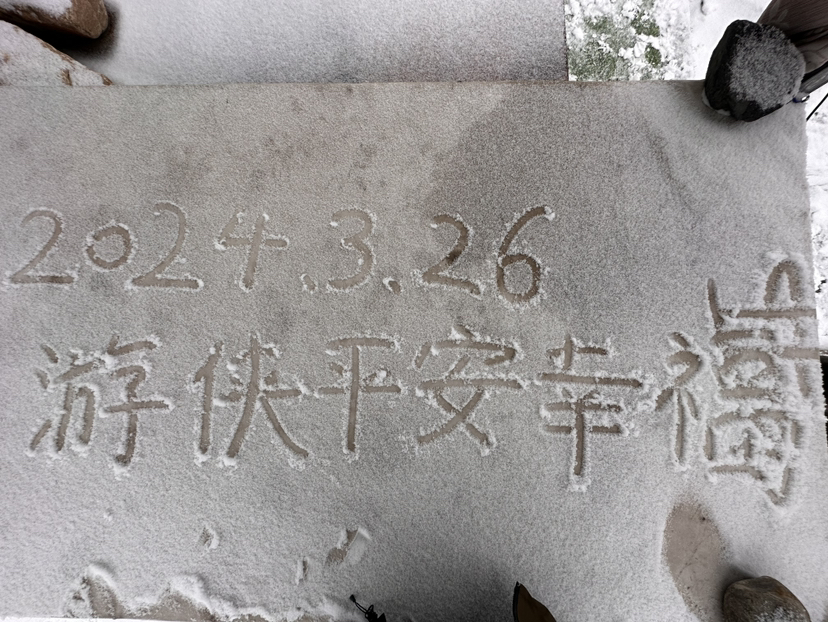 2024.3.26
游侠平安幸福